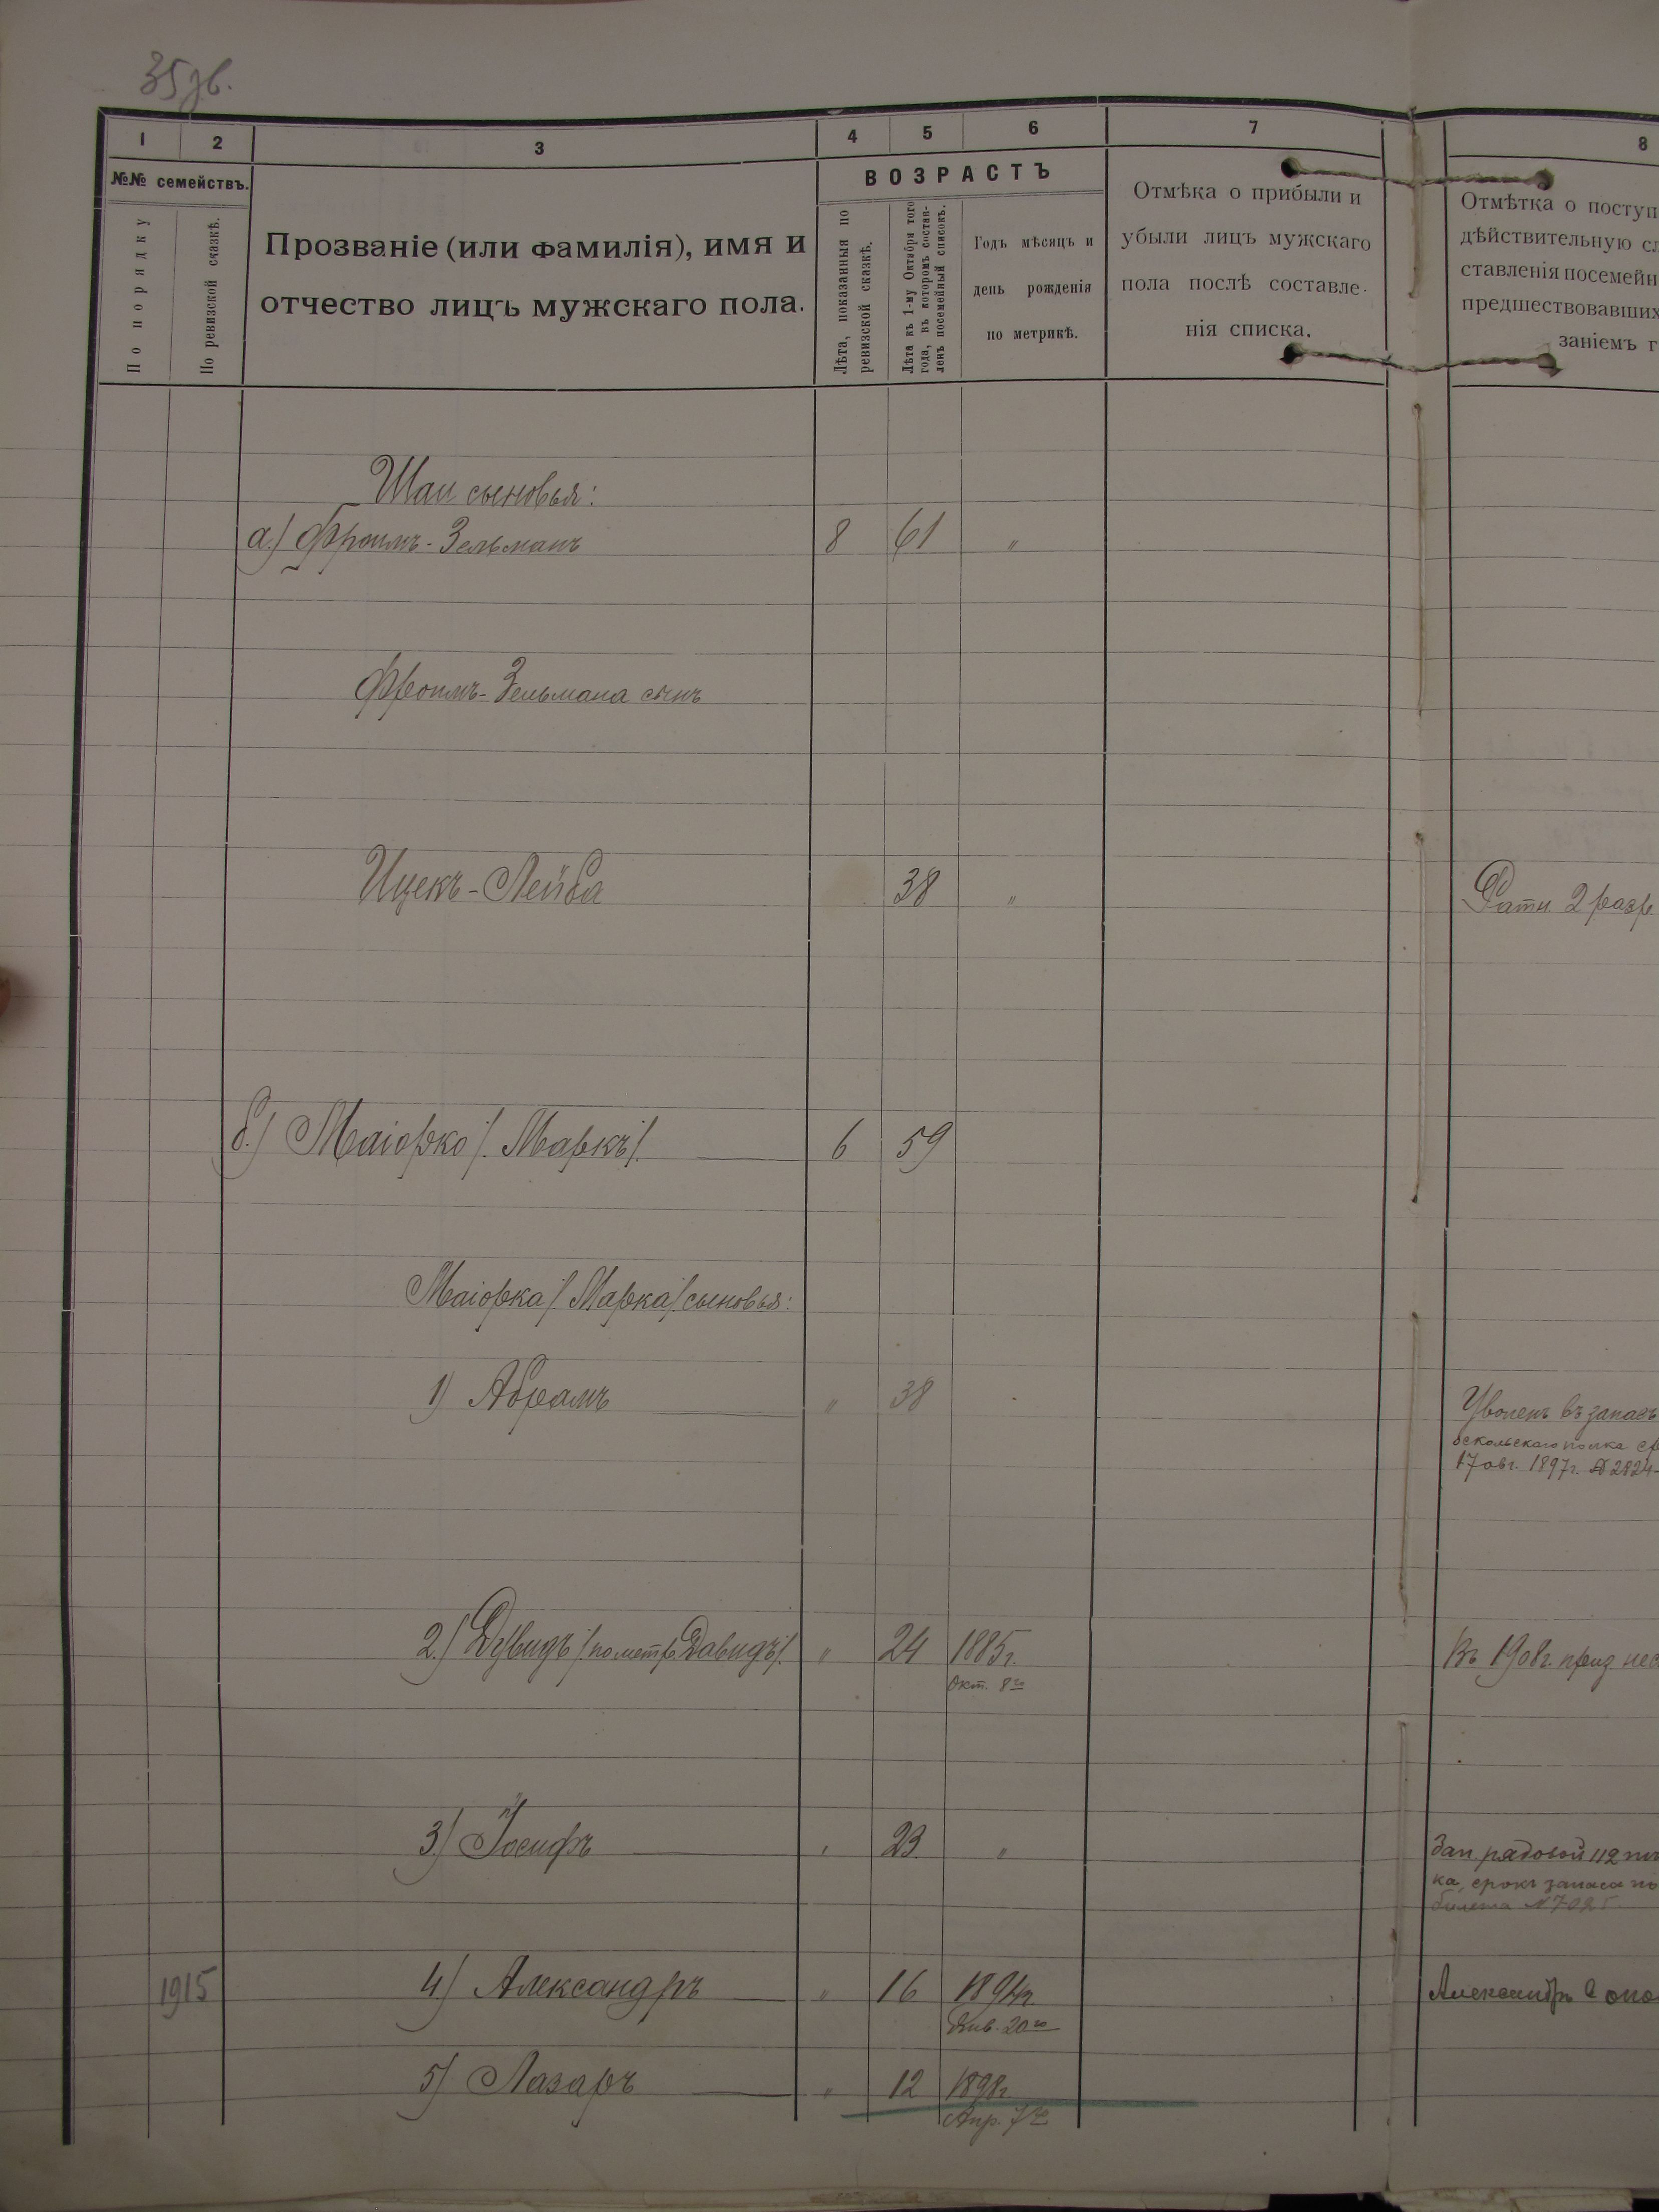 35зв.
1 2 3 4 5 6 7 8
№№ семействъ.
По порядку
По ревизской сказкѣ.
Прозваніе (или фамилія), имя и
отчество лицъ мужскаго пола.
ВОЗРАСТЪ
Лѣта, показанныя по
ревизской сказкѣ.
Лѣта къ 1-му Октября того
года, въ которомъ состав-
ленъ посемейный списокъ.
Годъ мѣсяцъ и
день рожденія
по метрикѣ.
Отмѣка о прибыли и
убыли лицъ мужскаго
пола послѣ составле-
нія списка.
Отмѣтка о поступ
дѣйствительную сл
ставленія посемейн
предшествовавших
заніемъ г
Шаи сыновья:
а.) Фроимъ-Зельманъ 8 61 "
Фроимъ-Зельмана сынъ
Ицекъ-Лейба 38 " Ратн. 2 разр
б.) Маіорко /. Маркъ/. 6 59
Маіорка /. Марка/. сыновья:
1) Абрамъ " 38
Уволенъ въ запасъ
оскольскаго полка ср
17 авг. 1897г. № 2824
2.) Дувидъ /по метр. Давидъ/. " 24 1885г. Въ 1908г. приз нес
Окт. 8го
3.) Іосифъ " 23 "
Зап. рядовой 112 пѣ
ка, срокъ запаса по
билета №
1915 4) Александръ " 16 1894г. Александръ
Янв. 20го
5) Лазарь " 12 1898г
Апр. 7го